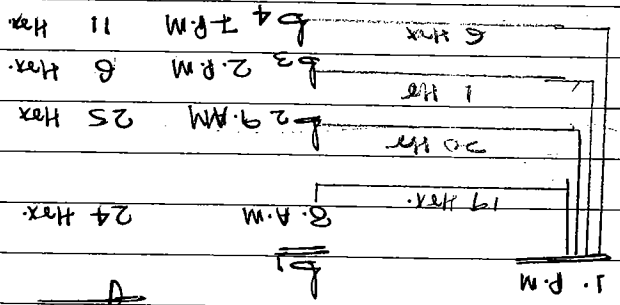 1. P.M
p1
19 Hrs. 8. A.M 24 Hrs.
20 Hr p2 9. AM 25 Hrs
1 Hr p3 2. P.M 6 Hrs.
6 Hrs p4 7 P.M 11 Hrs.